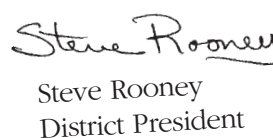 Steve Rooney
Steve Rooney
District President